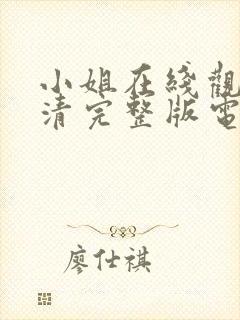 小姐在綫觀
清完整版電
廖仕祺